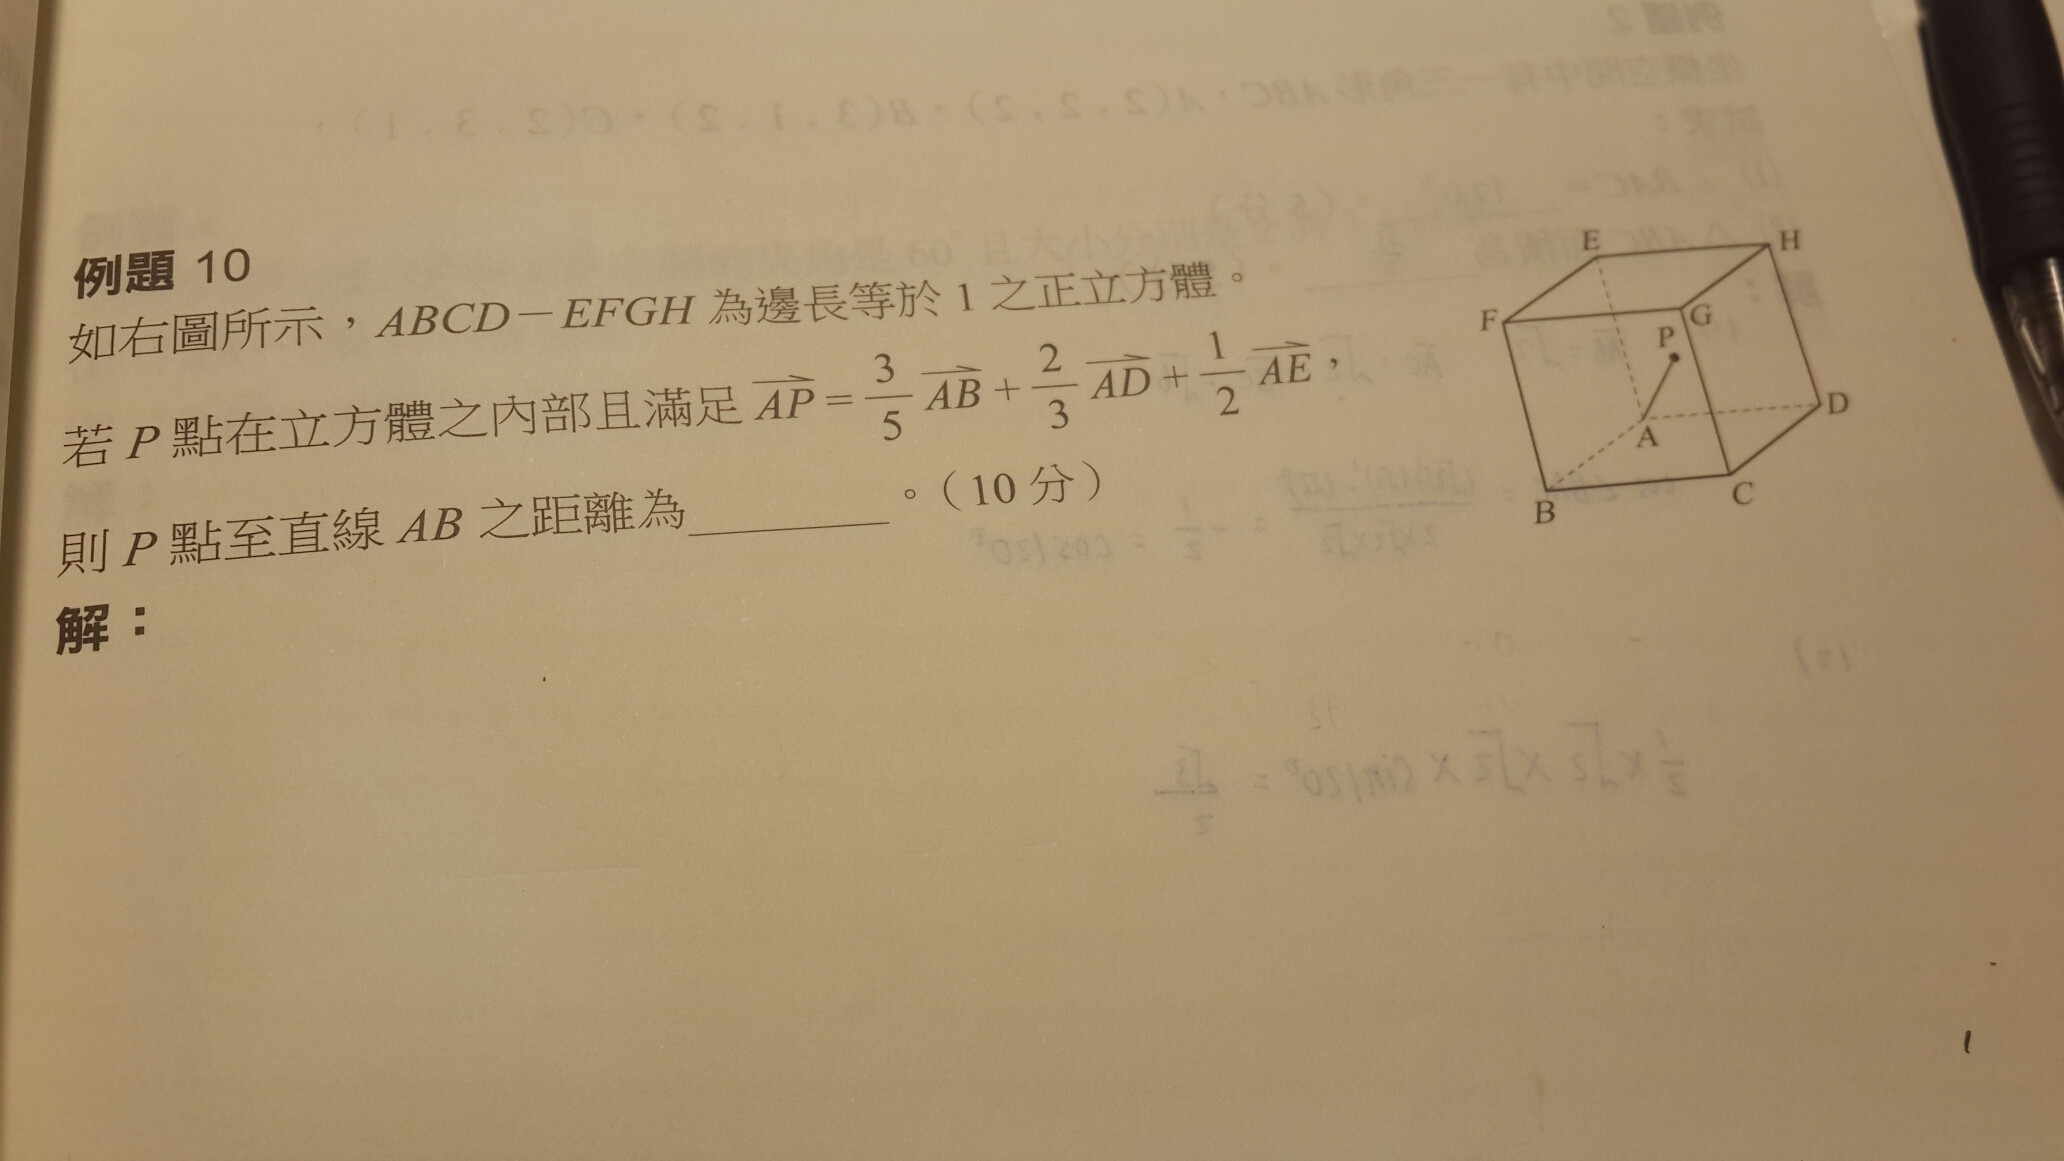 例題 10
如右圖所示，ABCD－EFGH 為邊長等於 1 之正立方體。
若 P 點在立方體之內部且滿足 $\overrightarrow{AP}=\frac{3}{5}\overrightarrow{AB}+\frac{2}{3}\overrightarrow{AD}+\frac{1}{2}\overrightarrow{AE}$，
則 P 點至直線 AB 之距離為________。（10 分）
解：
E
H
F
G
P
A
D
B
C